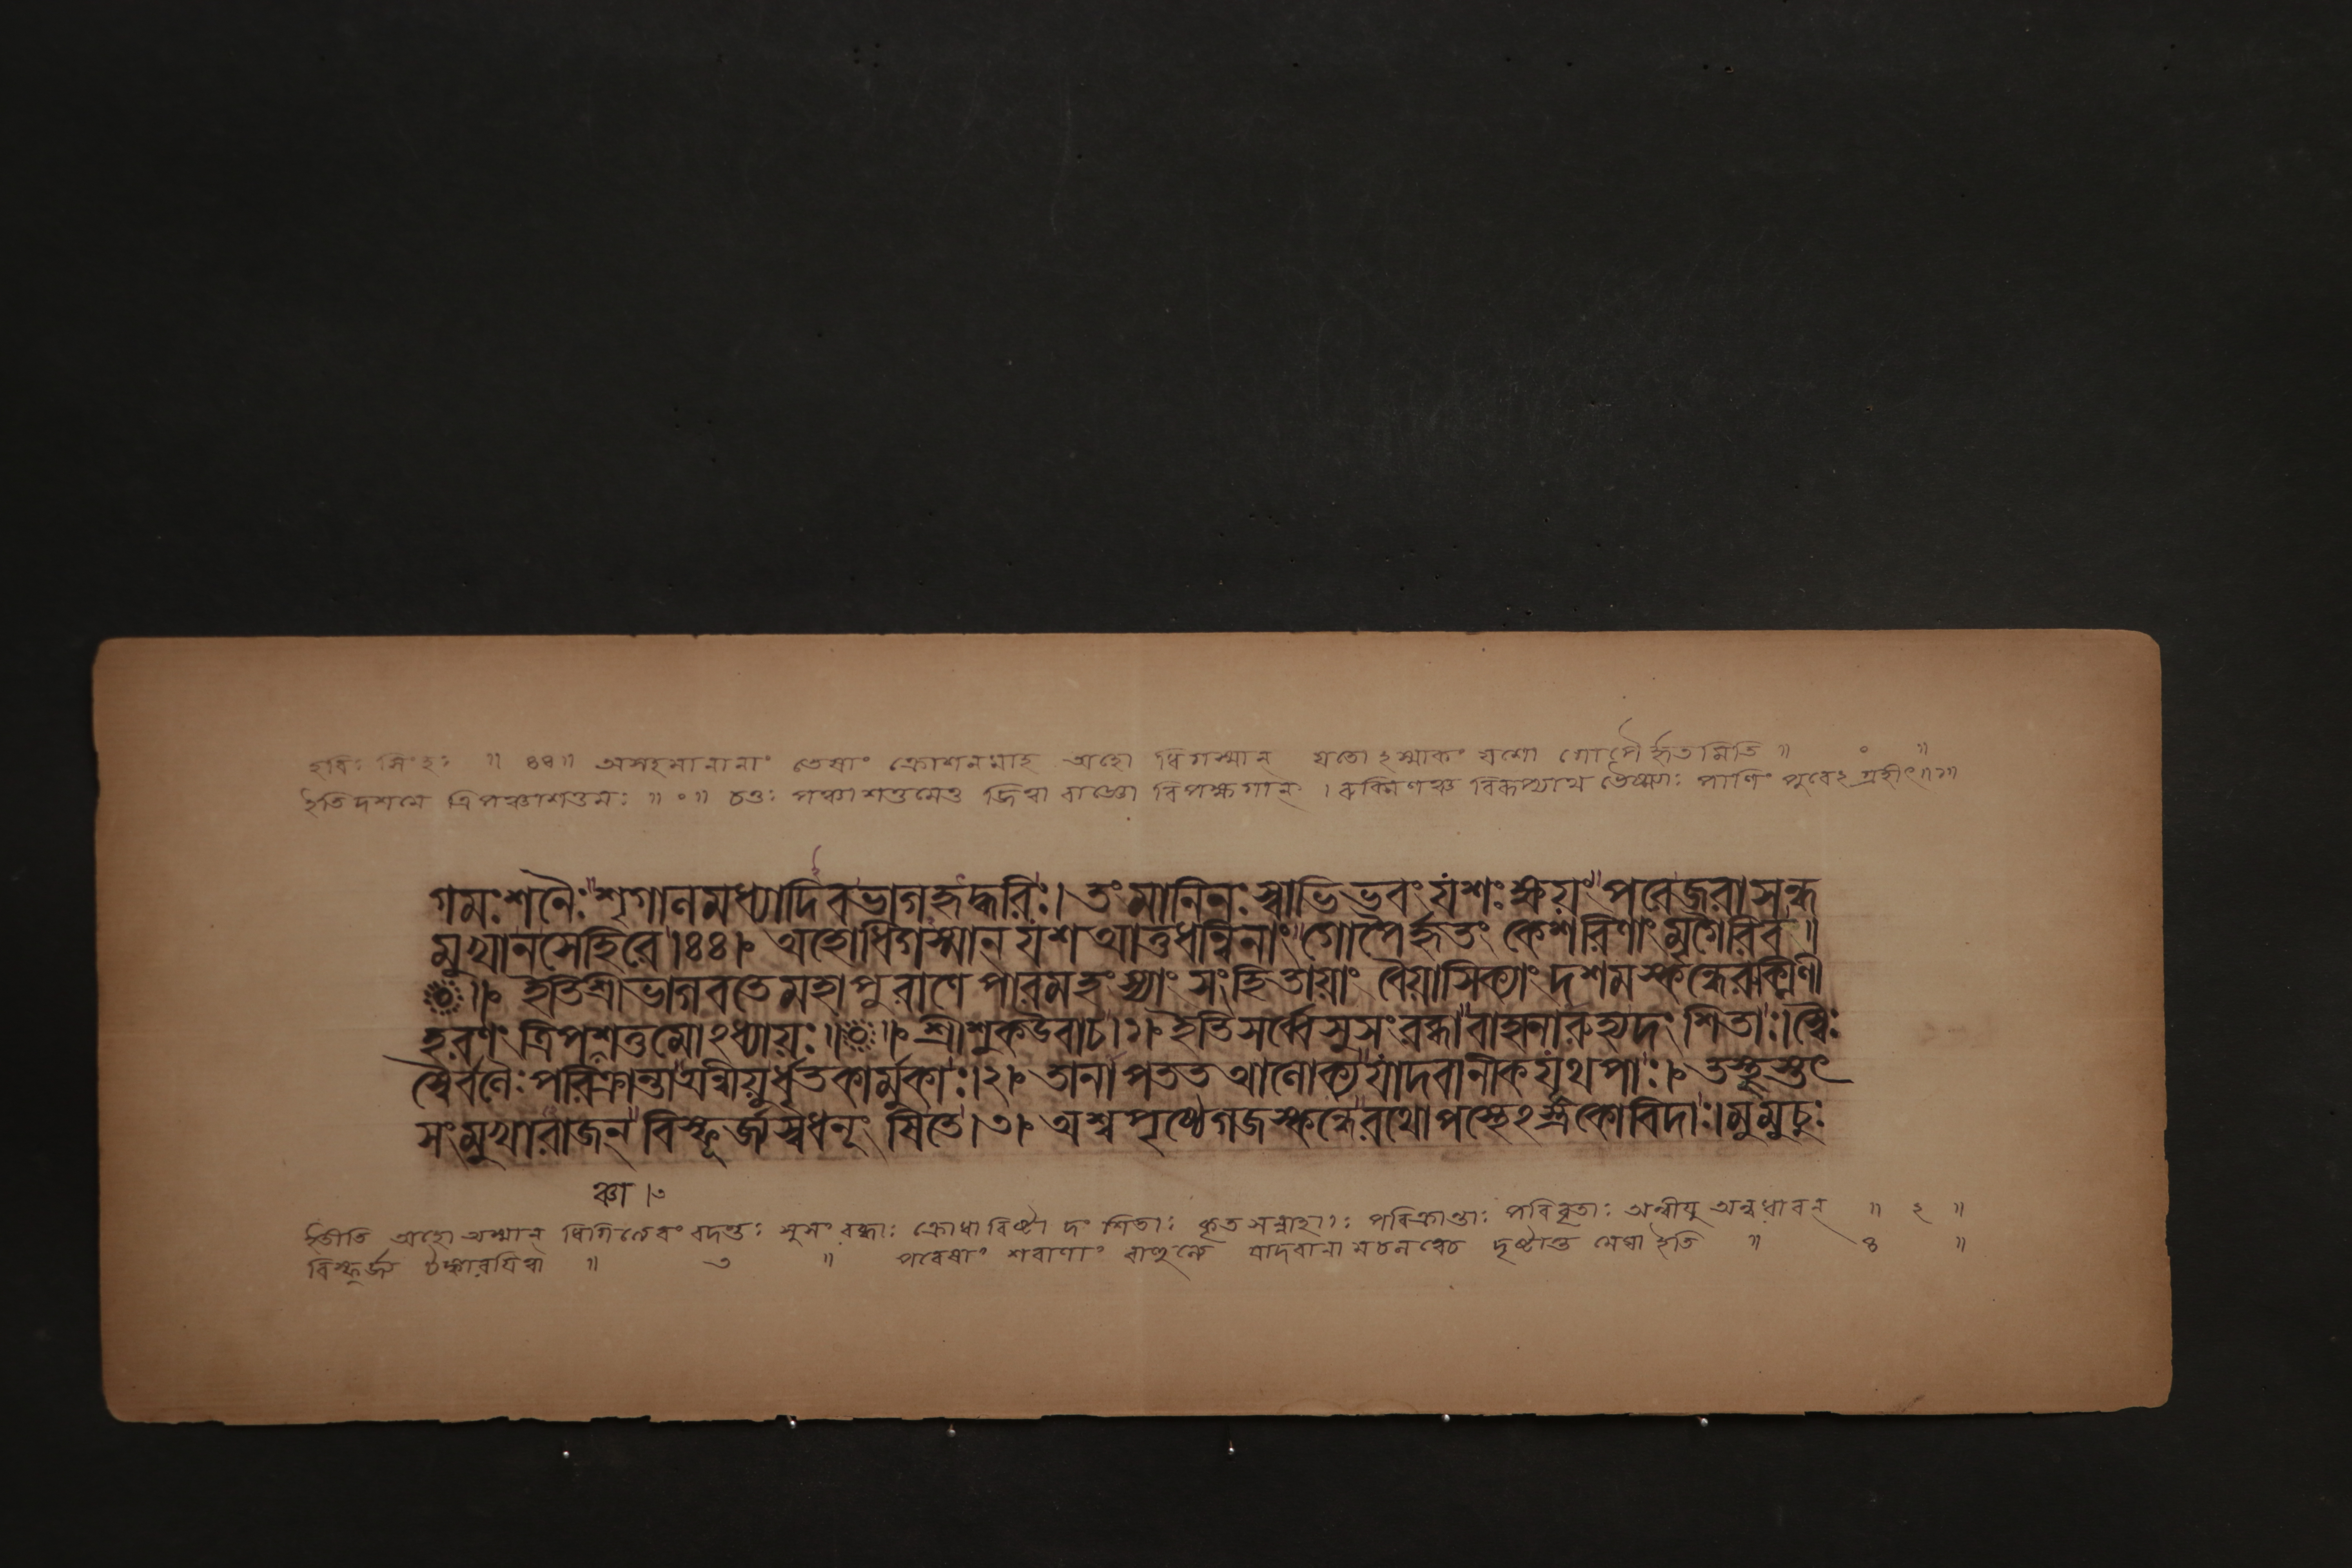 হরিঃ সিংহঃ ॥ ৪৪॥ অসহমানানাং তেষাং ক্রোশনমাহ অহো ধিগস্মান্ যতোঽস্মাকং যশো গোপৈর্হৃতমিতি ॥ ০ ॥
ইতিদশমে ত্রিপঞ্চাশত্তমঃ ॥ ০ ॥ চতুঃ পঞ্চাশত্তমেতু জিত্বা রাজ্ঞো বিপক্ষগান্ । রুক্মিণঞ্চ বিরূপ্যাথ ভৈষ্ম্যাঃ পাণিং পুরেঽগ্রহীৎ॥১॥
গমঃশনৈঃ শৃগানমধ্যাদিবভাগহৃদ্ধরিঃ। তংমানিনঃস্বাভিভবংযশঃক্ষয়ং পরেজরাসন্ধ
মুখানসেহিরে।৪৪। অহোধিগস্মান্ যশআত্তধন্বিনাং গোপৈর্হৃতং কেশরিণাং মৃগৈরিব॥
॥ ইতিশ্রীভাগবতেমহাপুরাণে পারমহংস্যাং সংহিতায়াং বৈয়াসিক্যাং দশমস্কন্ধেরুক্মিণী
হরণং ত্রিপঞ্চাশত্তমোঽধ্যায়ঃ॥ ॥ শ্রীশুকউবাচ।১। ইতিসর্ব্বেসুসংরব্ধাবাহানারুহ্যদংশিতাঃ।স্বৈঃ
স্বৈর্বলৈঃপরিক্রান্তাঅন্বীয়ুর্ধৃতকার্মুকাঃ।২। তানাপততআলোক্যযাদবানীকযূথপাঃ। তস্থুস্তৎ
সংমুখারাজন্ বিস্ফূর্জ্যস্বধনূংষিতে।৩। অশ্বপৃষ্ঠেগজস্কন্ধেরথোপস্থেঽস্ত্রকোবিদাঃ।মুমুচুঃ
ঞ্চা ।৩
ইতীতি অহো অস্মান্ ধিগিত্যেবং বদন্তঃ সুসংরব্ধাঃ ক্রোধাবিষ্টা দংশিতাঃ কৃতসন্নাহাঃ পরিক্রান্তাঃ পরিবৃতাঃ অন্বীয়ু অন্বধাবন্ ॥ ২ ॥
বিস্ফূর্জ্য টঙ্কারযিত্বা ॥ ৩ ॥ পরেষাং শরাণাং বাহুল্যে যাদবানামচলত্বেচ দৃষ্টান্ত মেঘা ইতি ॥ ৪ ॥